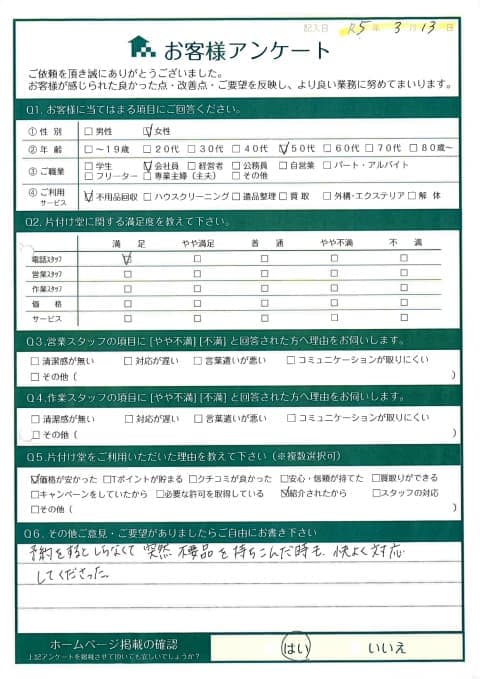 記入日 R5 年 3 月 13 日
お客様アンケート
ご依頼を頂き誠にありがとうございました。
お客様が感じられた良かった点・改善点・ご要望を反映し、より良い業務に努めてまいります。
Q1. お客様に当てはまる項目にご回答ください。
① 性 別 □ 男性 ☑ 女性
② 年 齢 □ ～１９歳 □ ２０代 □ ３０代 □ ４０代 ☑ ５０代 □ ６０代 □ ７０代 □ ８０歳～
③ ご職業 □ 学生 ☑ 会社員 □ 経営者 □ 公務員 □ 自営業 □ パート・アルバイト
□ フリーター □ 専業主婦（主夫） □ その他
④ ご利用サービス ☑ 不用品回収 □ ハウスクリーニング □ 遺品整理 □ 買 取 □ 外構・エクステリア □ 解 体
Q2. 片付け堂に関する満足度を教えて下さい。
満 足 やや満足 普 通 やや不満 不 満
電話スタッフ ☑ □ □ □ □
営業スタッフ □ □ □ □ □
作業スタッフ □ □ □ □ □
価 格 □ □ □ □ □
サービス □ □ □ □ □
Q3. 営業スタッフの項目に [やや不満] [不満] と回答された方へ理由をお伺いします。
□ 清潔感が無い □ 対応が遅い □ 言葉遣いが悪い □ コミュニケーションが取りにくい
□ その他（ ）
Q4. 作業スタッフの項目に [やや不満] [不満] と回答された方へ理由をお伺いします。
□ 清潔感が無い □ 対応が遅い □ 言葉遣いが悪い □ コミュニケーションが取りにくい
□ その他（ ）
Q5. 片付け堂をご利用いただいた理由を教えて下さい（※複数選択可）
☑価格が安かった □Tポイントが貯まる □クチコミが良かった □安心・信頼が持てた □買取りができる
□キャンペーンをしていたから □必要な許可を取得している ☑紹介されたから □スタッフの対応
□その他（ ）
Q6. その他ご意見・ご要望がありましたらご自由にお書き下さい
予約をするとしらなくて 突然 不要品を持ちこんだ時も 快よく対応
してくださった。
ホームページ掲載の確認 はい いいえ
上記アンケートを掲載させて頂いても宜しいでしょうか？